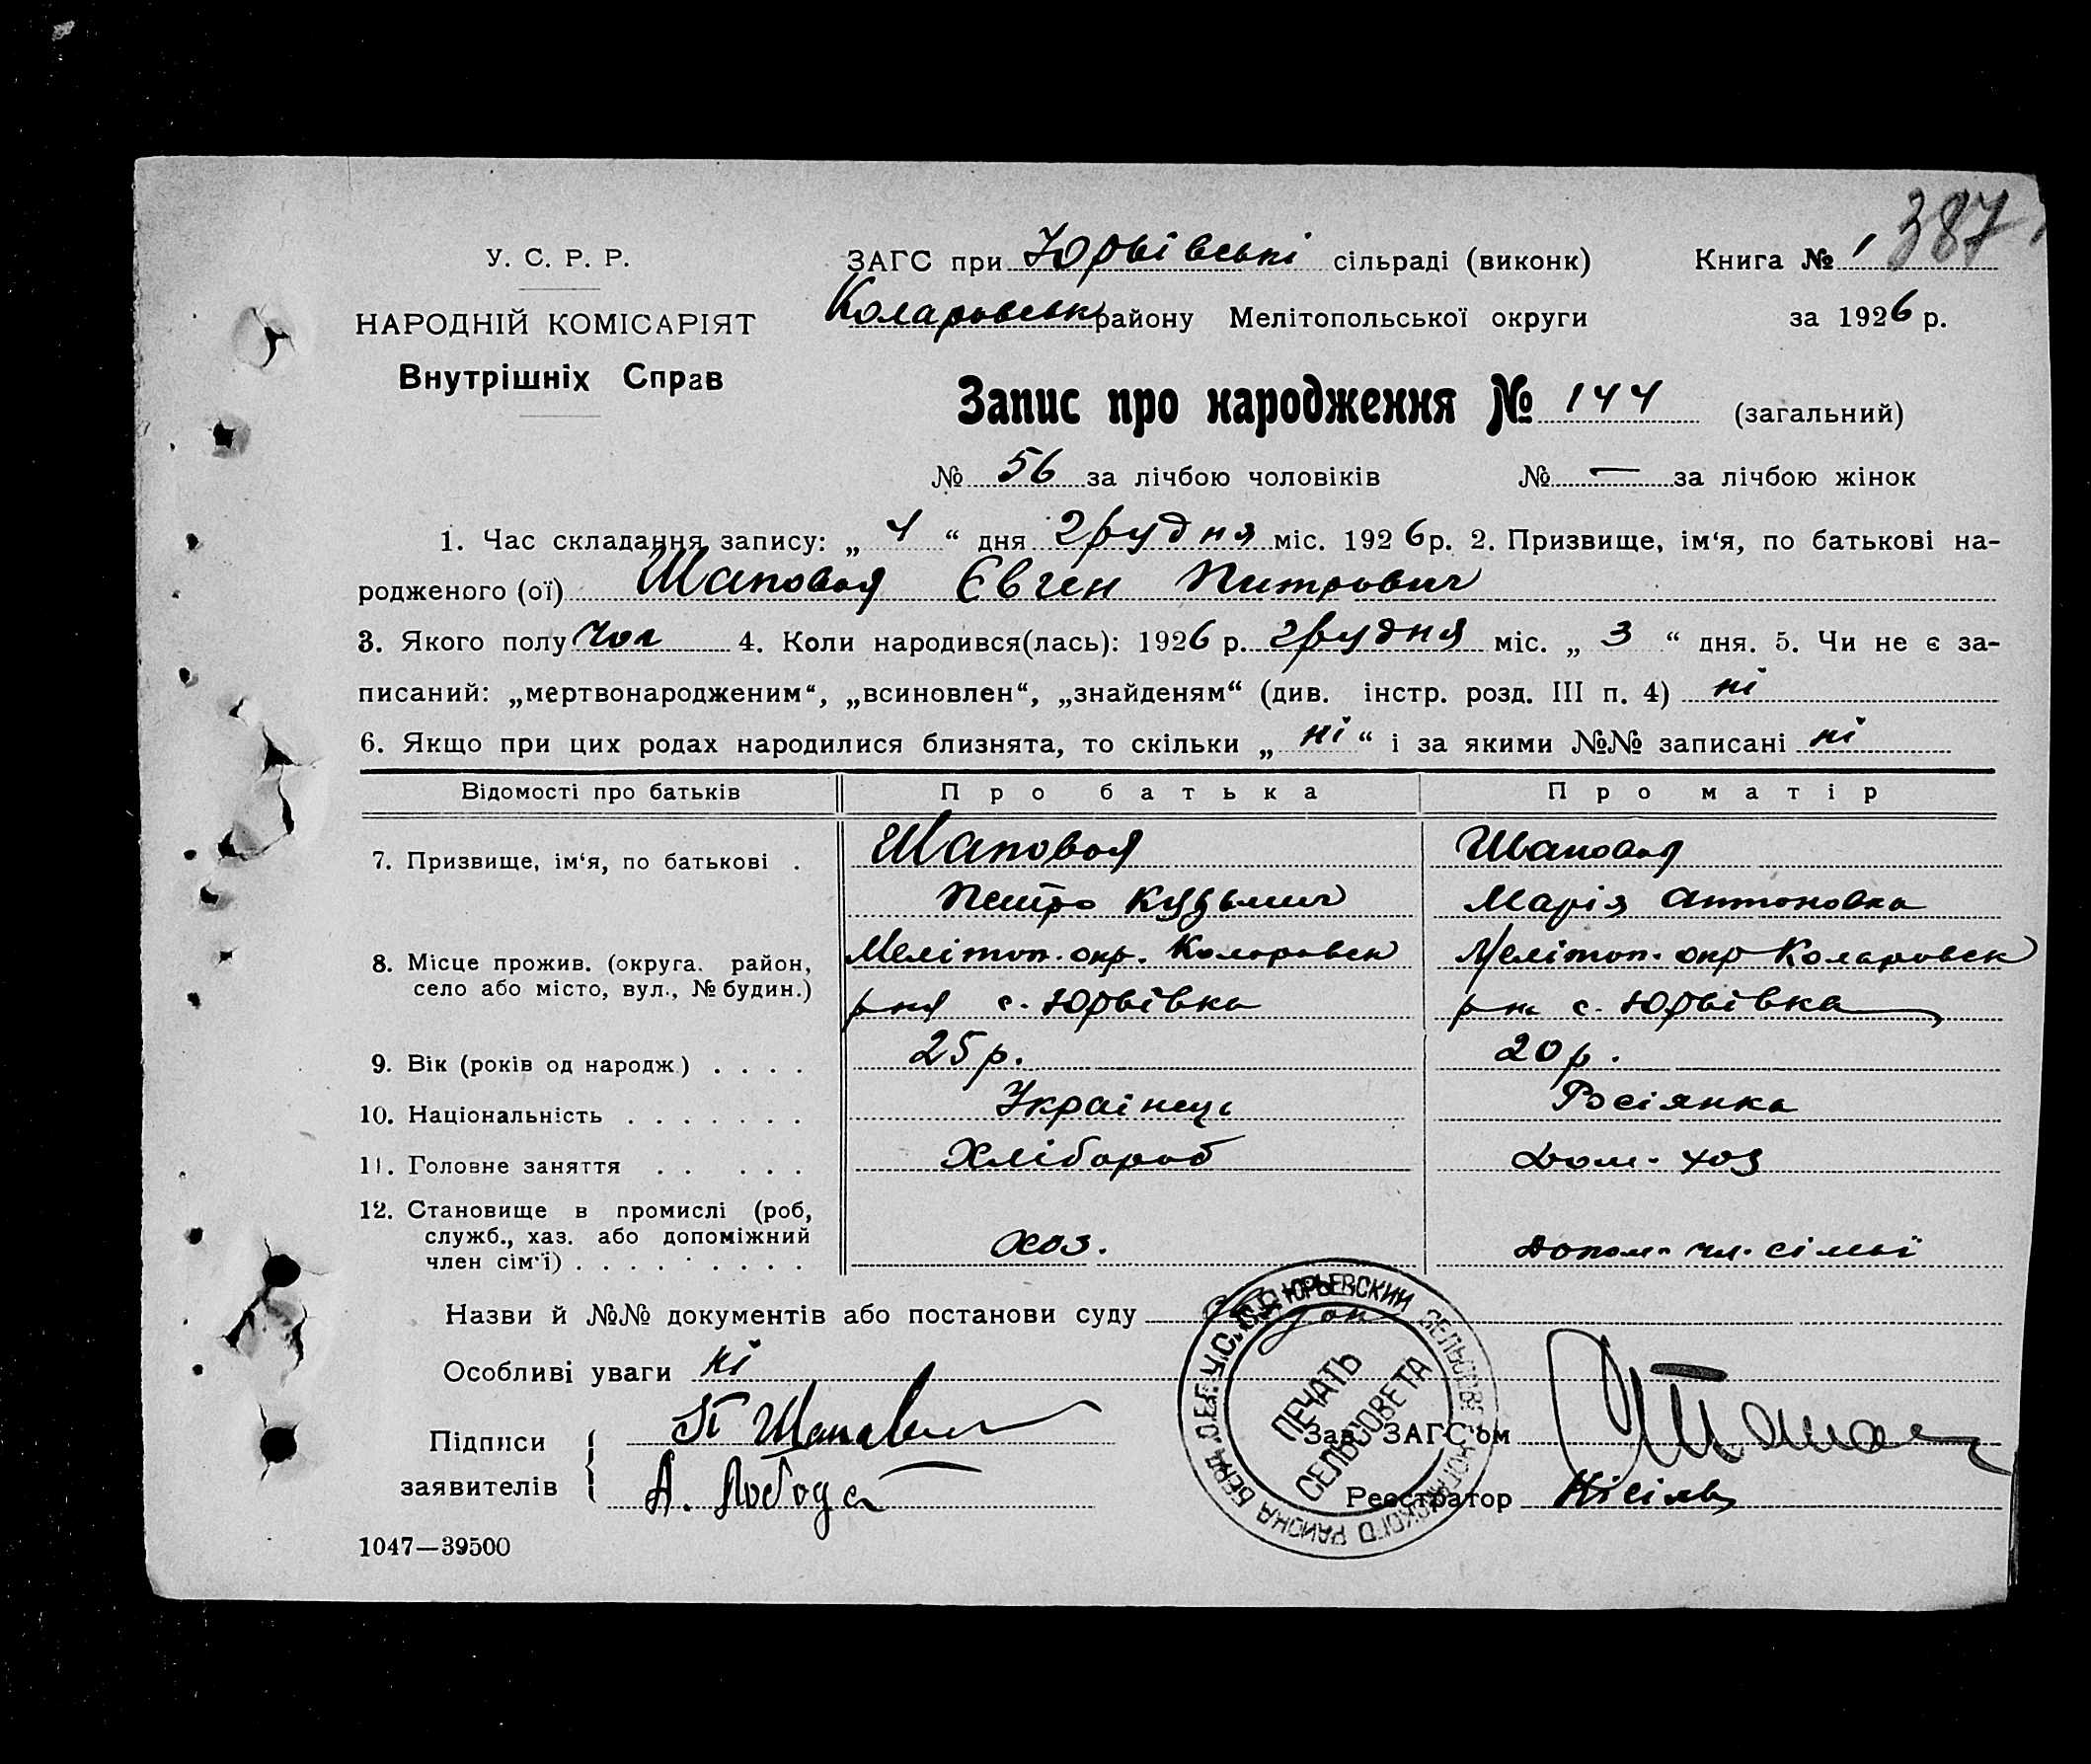 387
У. С. Р. Р.
НАРОДНІЙ КОМІСАРІЯТ
Внутрішніх Справ
ЗАГС при Юрьівські сільраді (виконк) Книга № 1
Коларовськ району Мелітопольської округи за 1926 р.
Запис про народження № 144 (загальний)
№ 56 за лічбою чоловіків № — за лічбою жінок
1. Час складання запису: „ 4 “ дня грудня міс. 1926 р. 2. Призвище, ім‘я, по батькові на-
родженого (ої) Шаповал Євген Питрович
3. Якого полу чол 4. Коли народився(лась): 1926 р. грудня міс. „ 3 “ дня. 5. Чи не є за-
писаний: „мертвонародженим“, „всиновлен“, „знайденям“ (див. інстр. розд. III п. 4) ні
6. Якщо при цих родах народилися близнята, то скільки „ ні “ і за якими №№ записані ні
Відомості про батьків Про батька Про матір
7. Призвище, ім‘я, по батькові . Шаповал Шаповал
Петро Кузьмич Марія Антоновна
8. Місце прожив. (округа. район, село або місто, вул., № будин.) Мелітоп. окр. Коларовськ Мелітоп. окр Коларовськ
рна с. Юрьівка рна с. Юрьівка
9. Вік (років од народж.) . . . . 25 р. 20 р.
10. Національність . . . . . . . Українець Росіянка
11. Головне заняття . . . . . Хлібороб Дом. хоз
12. Становище в промислі (роб, служб., хаз. або допоміжний член сім‘ї) . . . . . . . . . Хоз. Допом. чл. сімьї
Назви й №№ документів або постанови суду
Особливі уваги ні
Підписи заявителів П Шаповал
А. Лобода
Зав. ЗАГС‘ом
Реєстратор Кісіль
ЮРЬЕВСКИЙ СЕЛЬСОВЕТ
РАЙОНА БЕРД.
У.С.С.Р.
ПЕЧАТЬ
СЕЛЬСОВЕТА
1047—39500